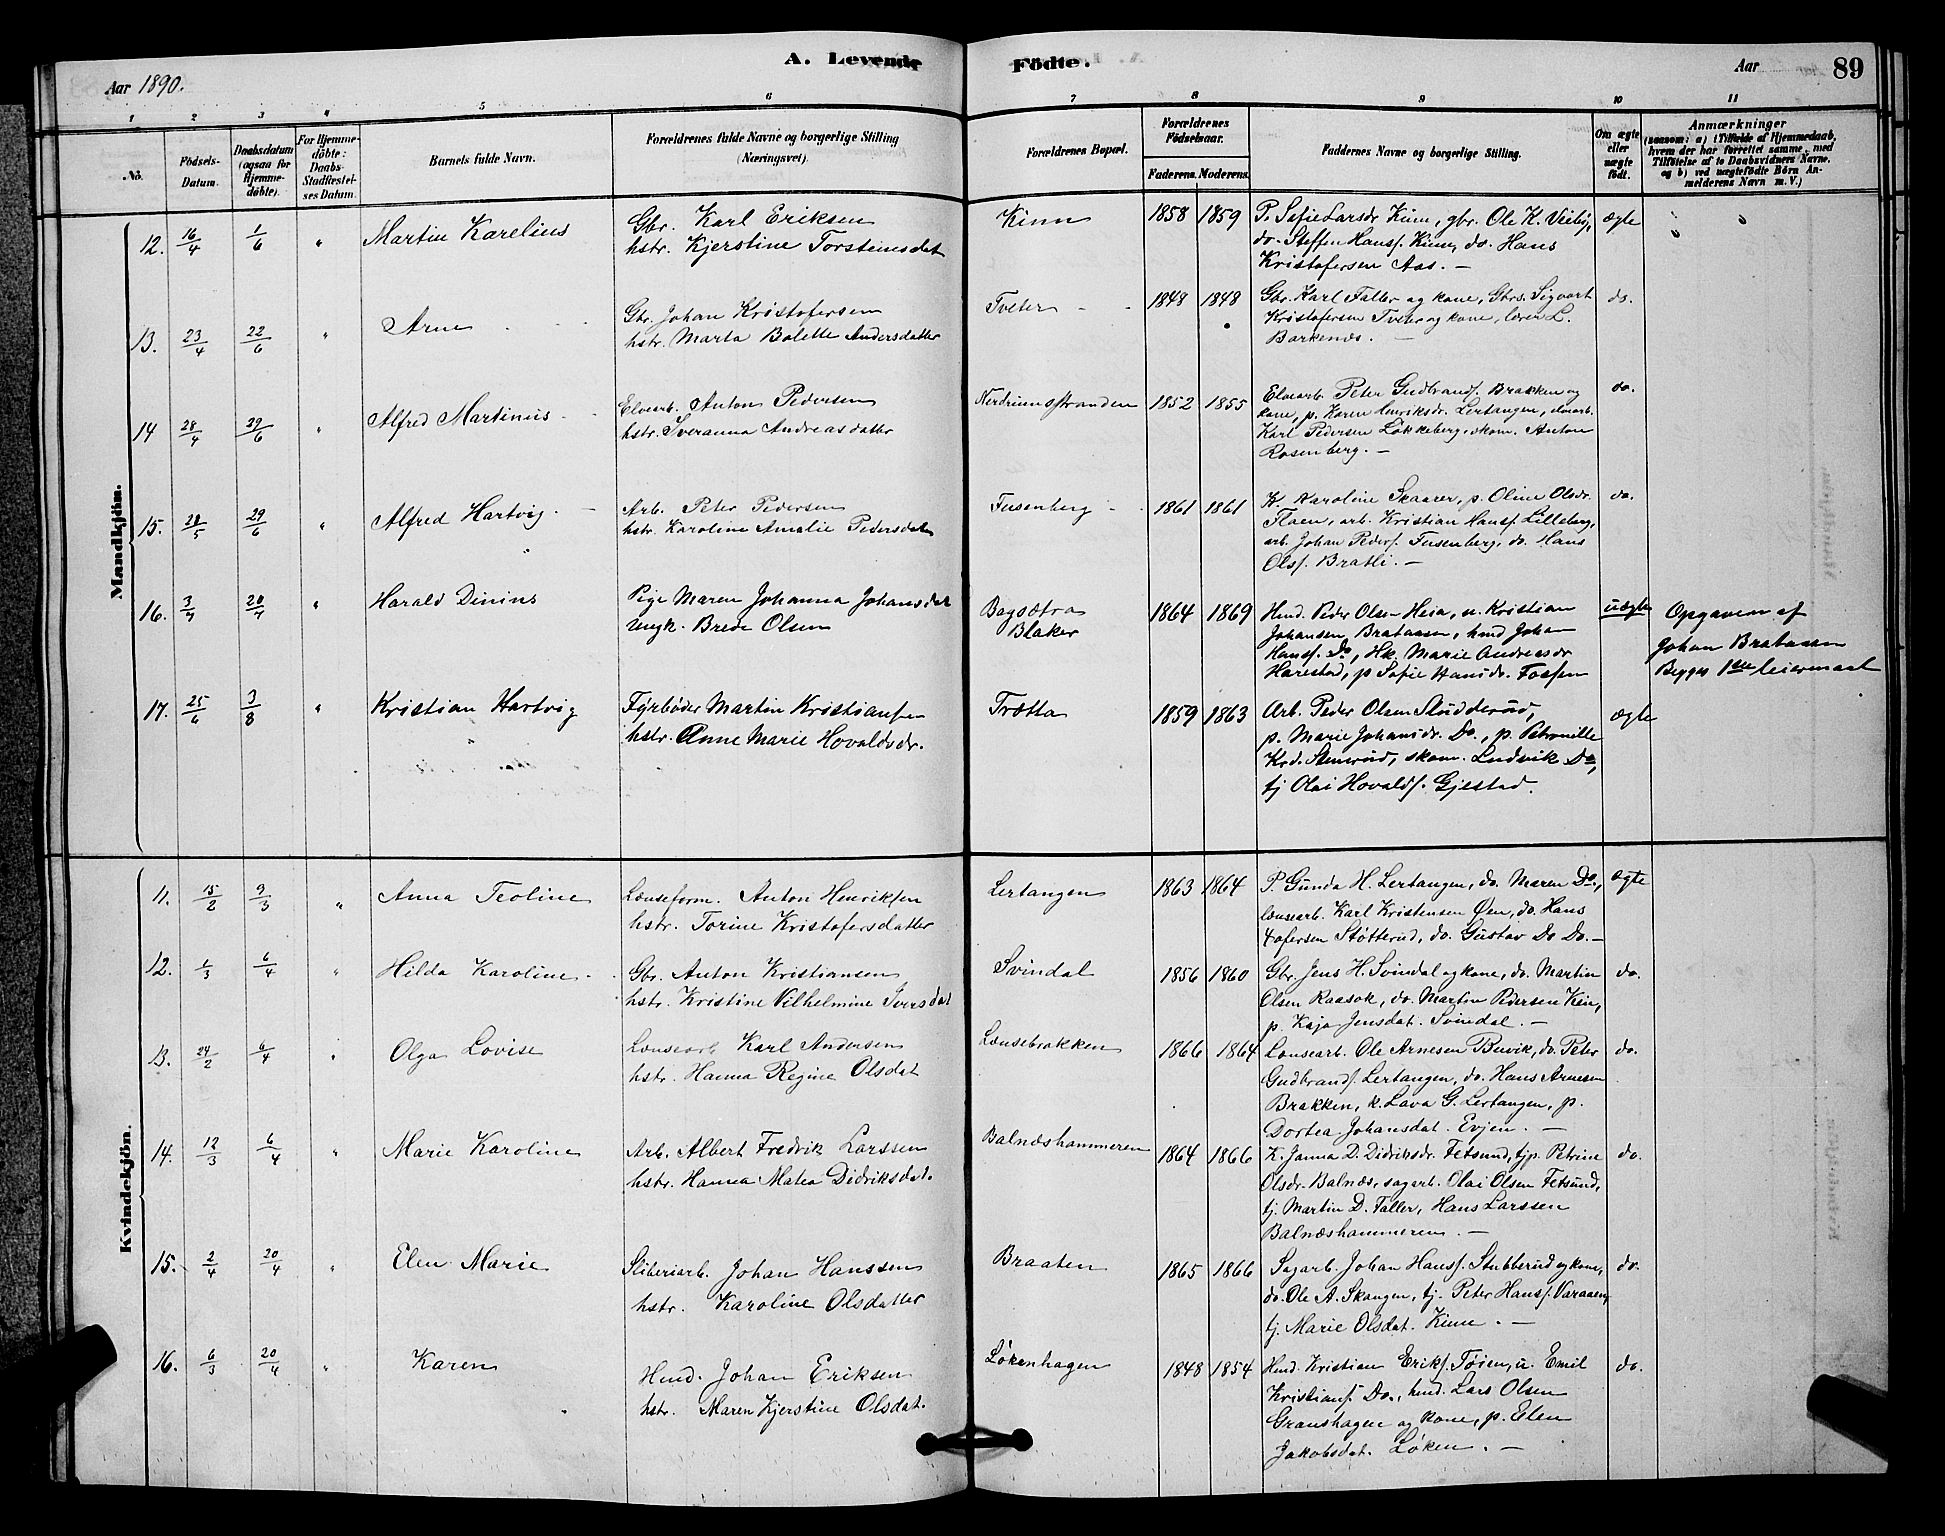 Aar 1890.
A. Levende
Födte.
Aar
89
1 2 3 4 5 6 7 8 9 10 11
No.
Födsels-Datum.
Daabsdatum (ogsaa for Hjemme-döbte).
For Hjemme-döbte: Daabs-Stadfæstel-ses Datum.
Barnets fulde Navn.
Forældrenes fulde Navne og borgerlige Stilling (Næringsvei).
Forældrenes Bopæl.
Forældrenes Födselsaar.
Faderens. Moderens.
Faddernes Navne og borgerlige Stilling.
Om ægte eller uægte födt.
Anmærkninger
(saasom: a) i Tilfælde af Hjemmedaab, hvem der har forrettet samme, med Tilföielse af to Daabsvidners Navne, og b) ved uægtefödte Börn An-melderens Navn m. V.)
Mandkjön.
12. 16/4 1/6 " Martin Karelius Gbr. Karl Eriksen Kinn 1858 1859 P. Sofie Larsdr Kinn, gbr. Ole K. Viebÿ, ægte " "
hstr. Kjerstine Torsteinsdat do. Steffen Hansf. Kinn, do. Hans
Kristofersen Aas. —
13. 23/4 22/6 " Arne Gbr. Johan Kristofersen Tveter 1848 1848 Gbr. Karl Faller og kone, Gbrs. Sigvart do.
hstr. Marta Bolette Andersdatter Kristofersen Tveter og kone, Søren L.
Barkenæs. —
14 28/4 29/6 " Alfred Martinus Elvearb. Anton Pedersen Nerdrumsstranden 1852 1855 Elvearb. Peter Gudbrandf. Brakken og do.
hstr. Sveranna Andreasdatter kone, p. Karen Henriksdr. Lertangen, elvearb.
Karl Pedersen Løkkeberg, skom. Anton
Rosenberg. —
15. 28/5 29/6 " Alfred Hartvig Arb. Peter Pedersen Fusenberg 1861 1861 K. Karoline Skaarer, p. Oline Olsdr. do.
hstr. Karoline Amalie Pedersdatr Flaen, arb. Kristian Hansf. Lilleberg,
arb. Johan Pedersf. Fusenberg, do. Hans
Olsf. Bratli. —
16. 3/7 20/7 " Harald Dinius Pige Maren Johanna Johansdat Bagsætra 1864 1869 Hmd. Peder Olsen Heia, u. Kristian uægte Opgaven af
Ungk. Brede Olsen Blaker Johansen Brataasen, hmd Johan Johan Brataasen
Hansf. Do, Hk. Marie Andreasdr Begges 1ste leiermaal
Harestad, p Sofie Hansdr. Fossen
17. 25/6 3/8 " Kristian Hartvig Fyrbøder Martin Kristiansen Trætta 1859 1863 Arb. Peder Olsen Studderud, ægte
hstr. Anne Marie Hovaldsdr. p. Marie Johansdr. Do., p. Petronille
Krd. Stenerud, skom. Ludvik Do,
tj Olai Hovaldf. Gjestad.
Kvindekjön.
11. 15/2 9/3 " Anna Teoline Lænseform. Anton Henriksen Lertangen 1863 1864 P. Gunda H. Lertangen, do. Maren Do, ægte
hstr. Torine Kristofersdatter lænsearb. Karl Kristensen Øen, do. Hans
Kofersen Støtterud, do. Gustav Do Do. —
12. 1/3 6/4 " Hilda Karoline Gbr. Anton Kristiansen Svindal 1856 1860 Gbr. Jens H. Svindal og kone, do. Martin do.
hstr. Kristine Vilhelmine Iversdat Olsen Raasok, do. Martin Pedersen Kin,
p. Kaja Jensdat. Svindal. —
13. 24/2 6/4 " Olga Lovise Lænsearb Karl Andersen Lænsebrakken 1866 1864 Lænsearb. Ole Arnesen Buvik, do. Peter do.
hstr. Hanna Regine Olsdat Gudbrandf. Lertangen, do. Hans Arnesen
Brakken, k. Lava G. Lertangen, p.
Dortea Johansdat. Evjen. —
14. 12/3 6/4 " Marie Karoline Arb. Albert Fredrik Larssen Balnæshammeren 1864 1866 K. Janna D. Didriksdr. Fetsund, tjp. Petrine do.
hstr. Hanna Matea Didriksdat. Olsdr. Balnæs, sagarb. Olai Olsen Fetsund,
tj. Martin D. Faller, Hans Larssen
Balnæshammeren. —
15. 2/4 20/4 " Elen Marie Sliberiarb. Johan Hanssen Braaten 1865 1866 Sagarb. Johan Hansf. Stubberud og kone, do.
hstr. Karoline Olsdatter do. Ole A. Skangen, tj. Peter Hansf. Varaaen,
tj. Marie Olsdat. Kinn. —
16. 6/3 20/4 " Karen Hmd. Johan Eriksen Løkenhagen 1848 1854 Hmd. Kristian Eriksf. Tøien, u. Emil do.
hstr. Maren Kjerstine Olsdat. Kristiansf. Do., hmd. Lars Olsen
Granshagen og kone, p. Elen
Jakobsdat. Løken. —